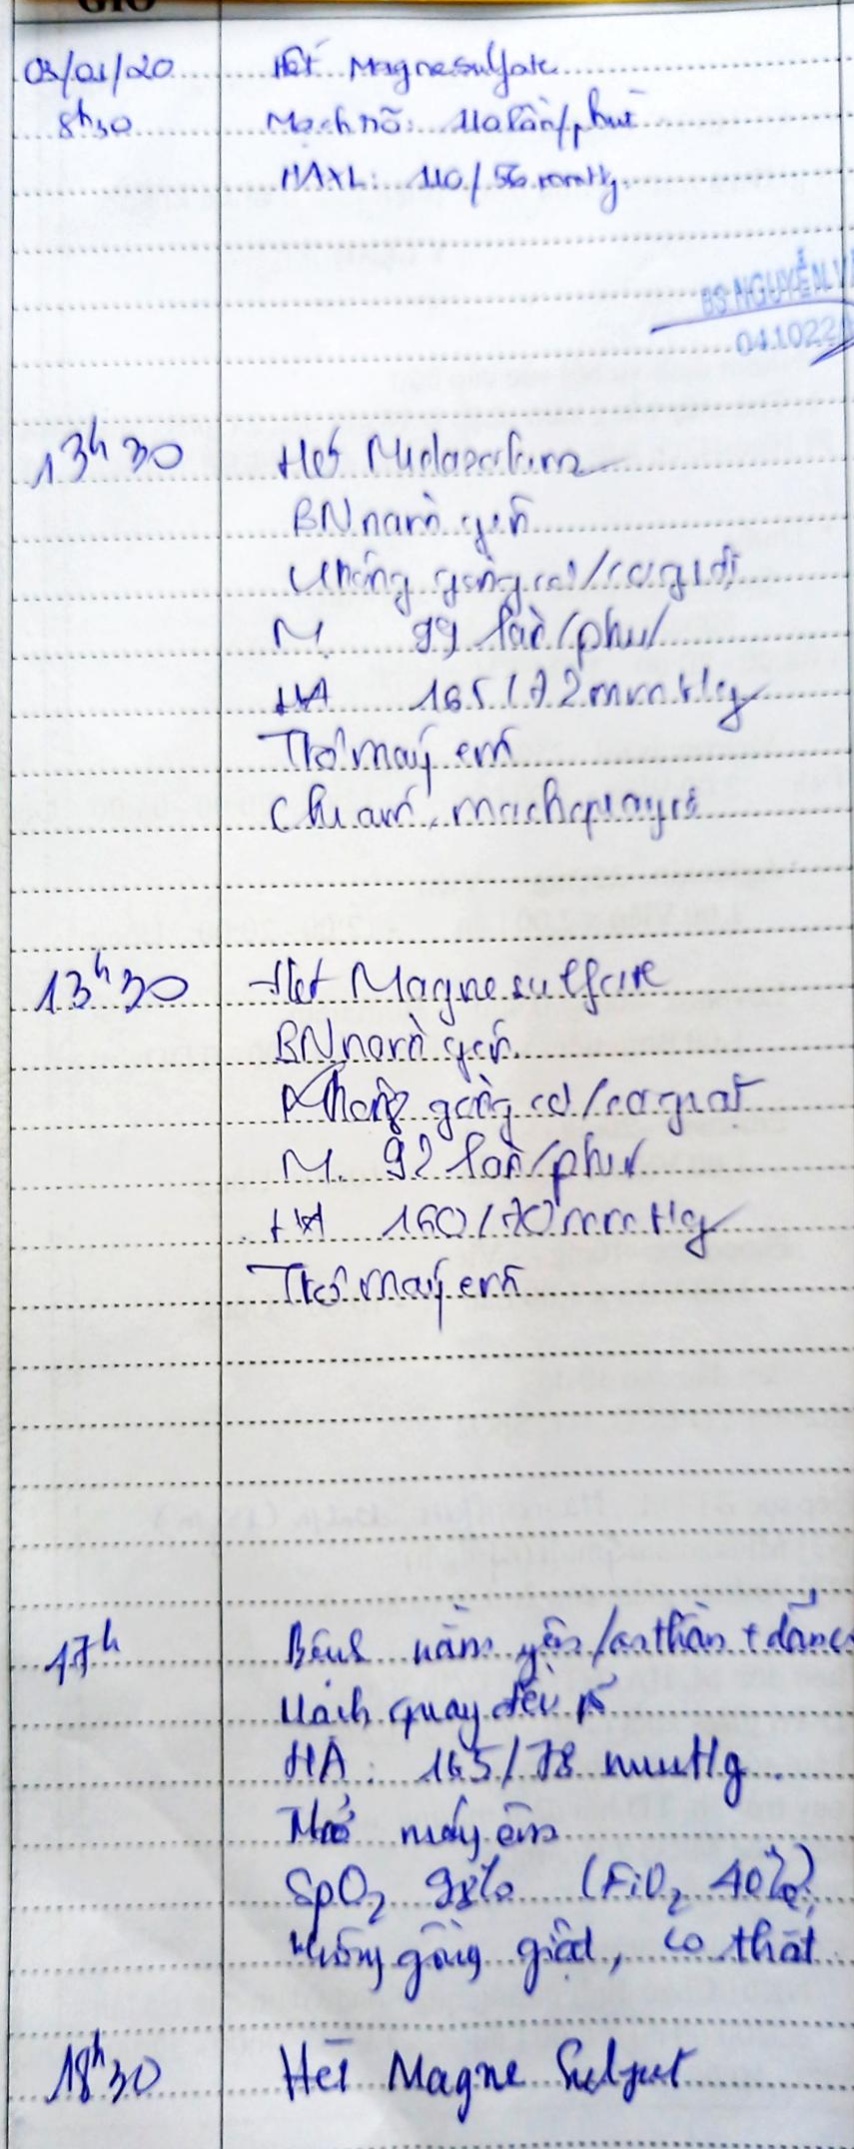 GIỜ
03/01/20 Hết Magnesulfate
8h30 Mạch mõ: 110 lần/phút
HAXL: 110/56 mmHg
BS NGUYỄN V
04.1022
13h30 Hết Midazolam
BN nằm yên
Không gồng cơ/co giật
M. 99 lần/phút
HA 165/72 mmHg
Thở máy êm
Chi ấm, mạch quay rõ
13h30 Hết Magnesulfate
BN nằm yên
Không gồng cơ/co giật
M. 92 lần/phút
HA 160/70 mmHg
Thở máy êm
17h Bệnh nằm yên/an thần +
Mạch quay đều rõ
HA: 165/78 mmHg
Thở máy êm
SpO2 98% (FiO2 40%)
Không gồng giật, co thắt
18h30 Hết Magne Sulfat